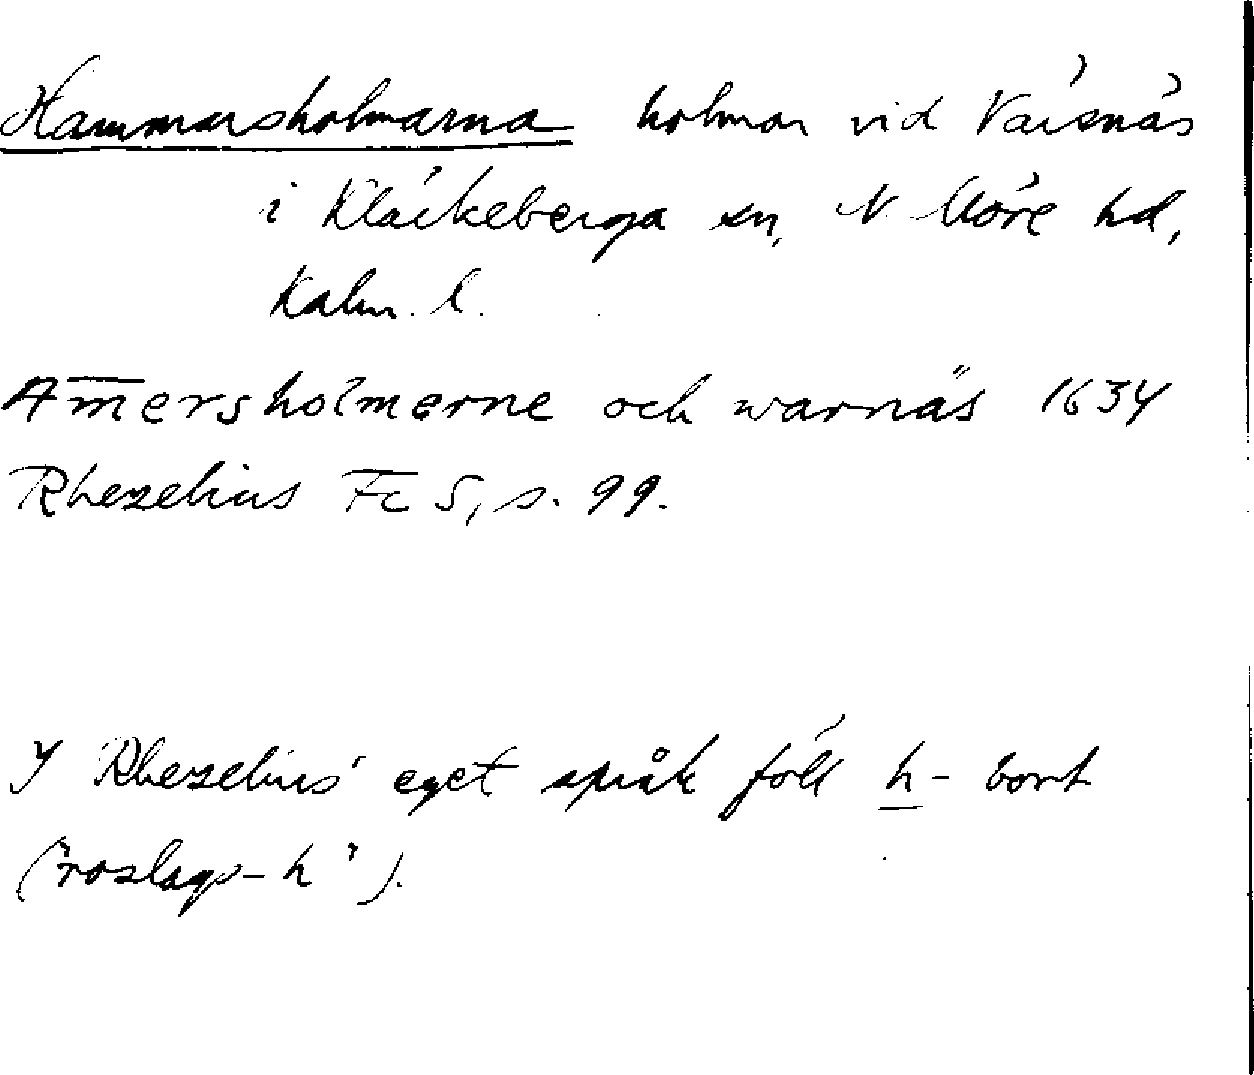 Hammarsholmarna holmar vid Värsnäs
i Kläckeberga sn, N. Möre hd,
Kalm. l.
Am̅ersholmerne och warnäs 1634
Rhezelius Fc 5, s. 99.
I Rhezelius' eget språk föll h- bort
("roslags-h").